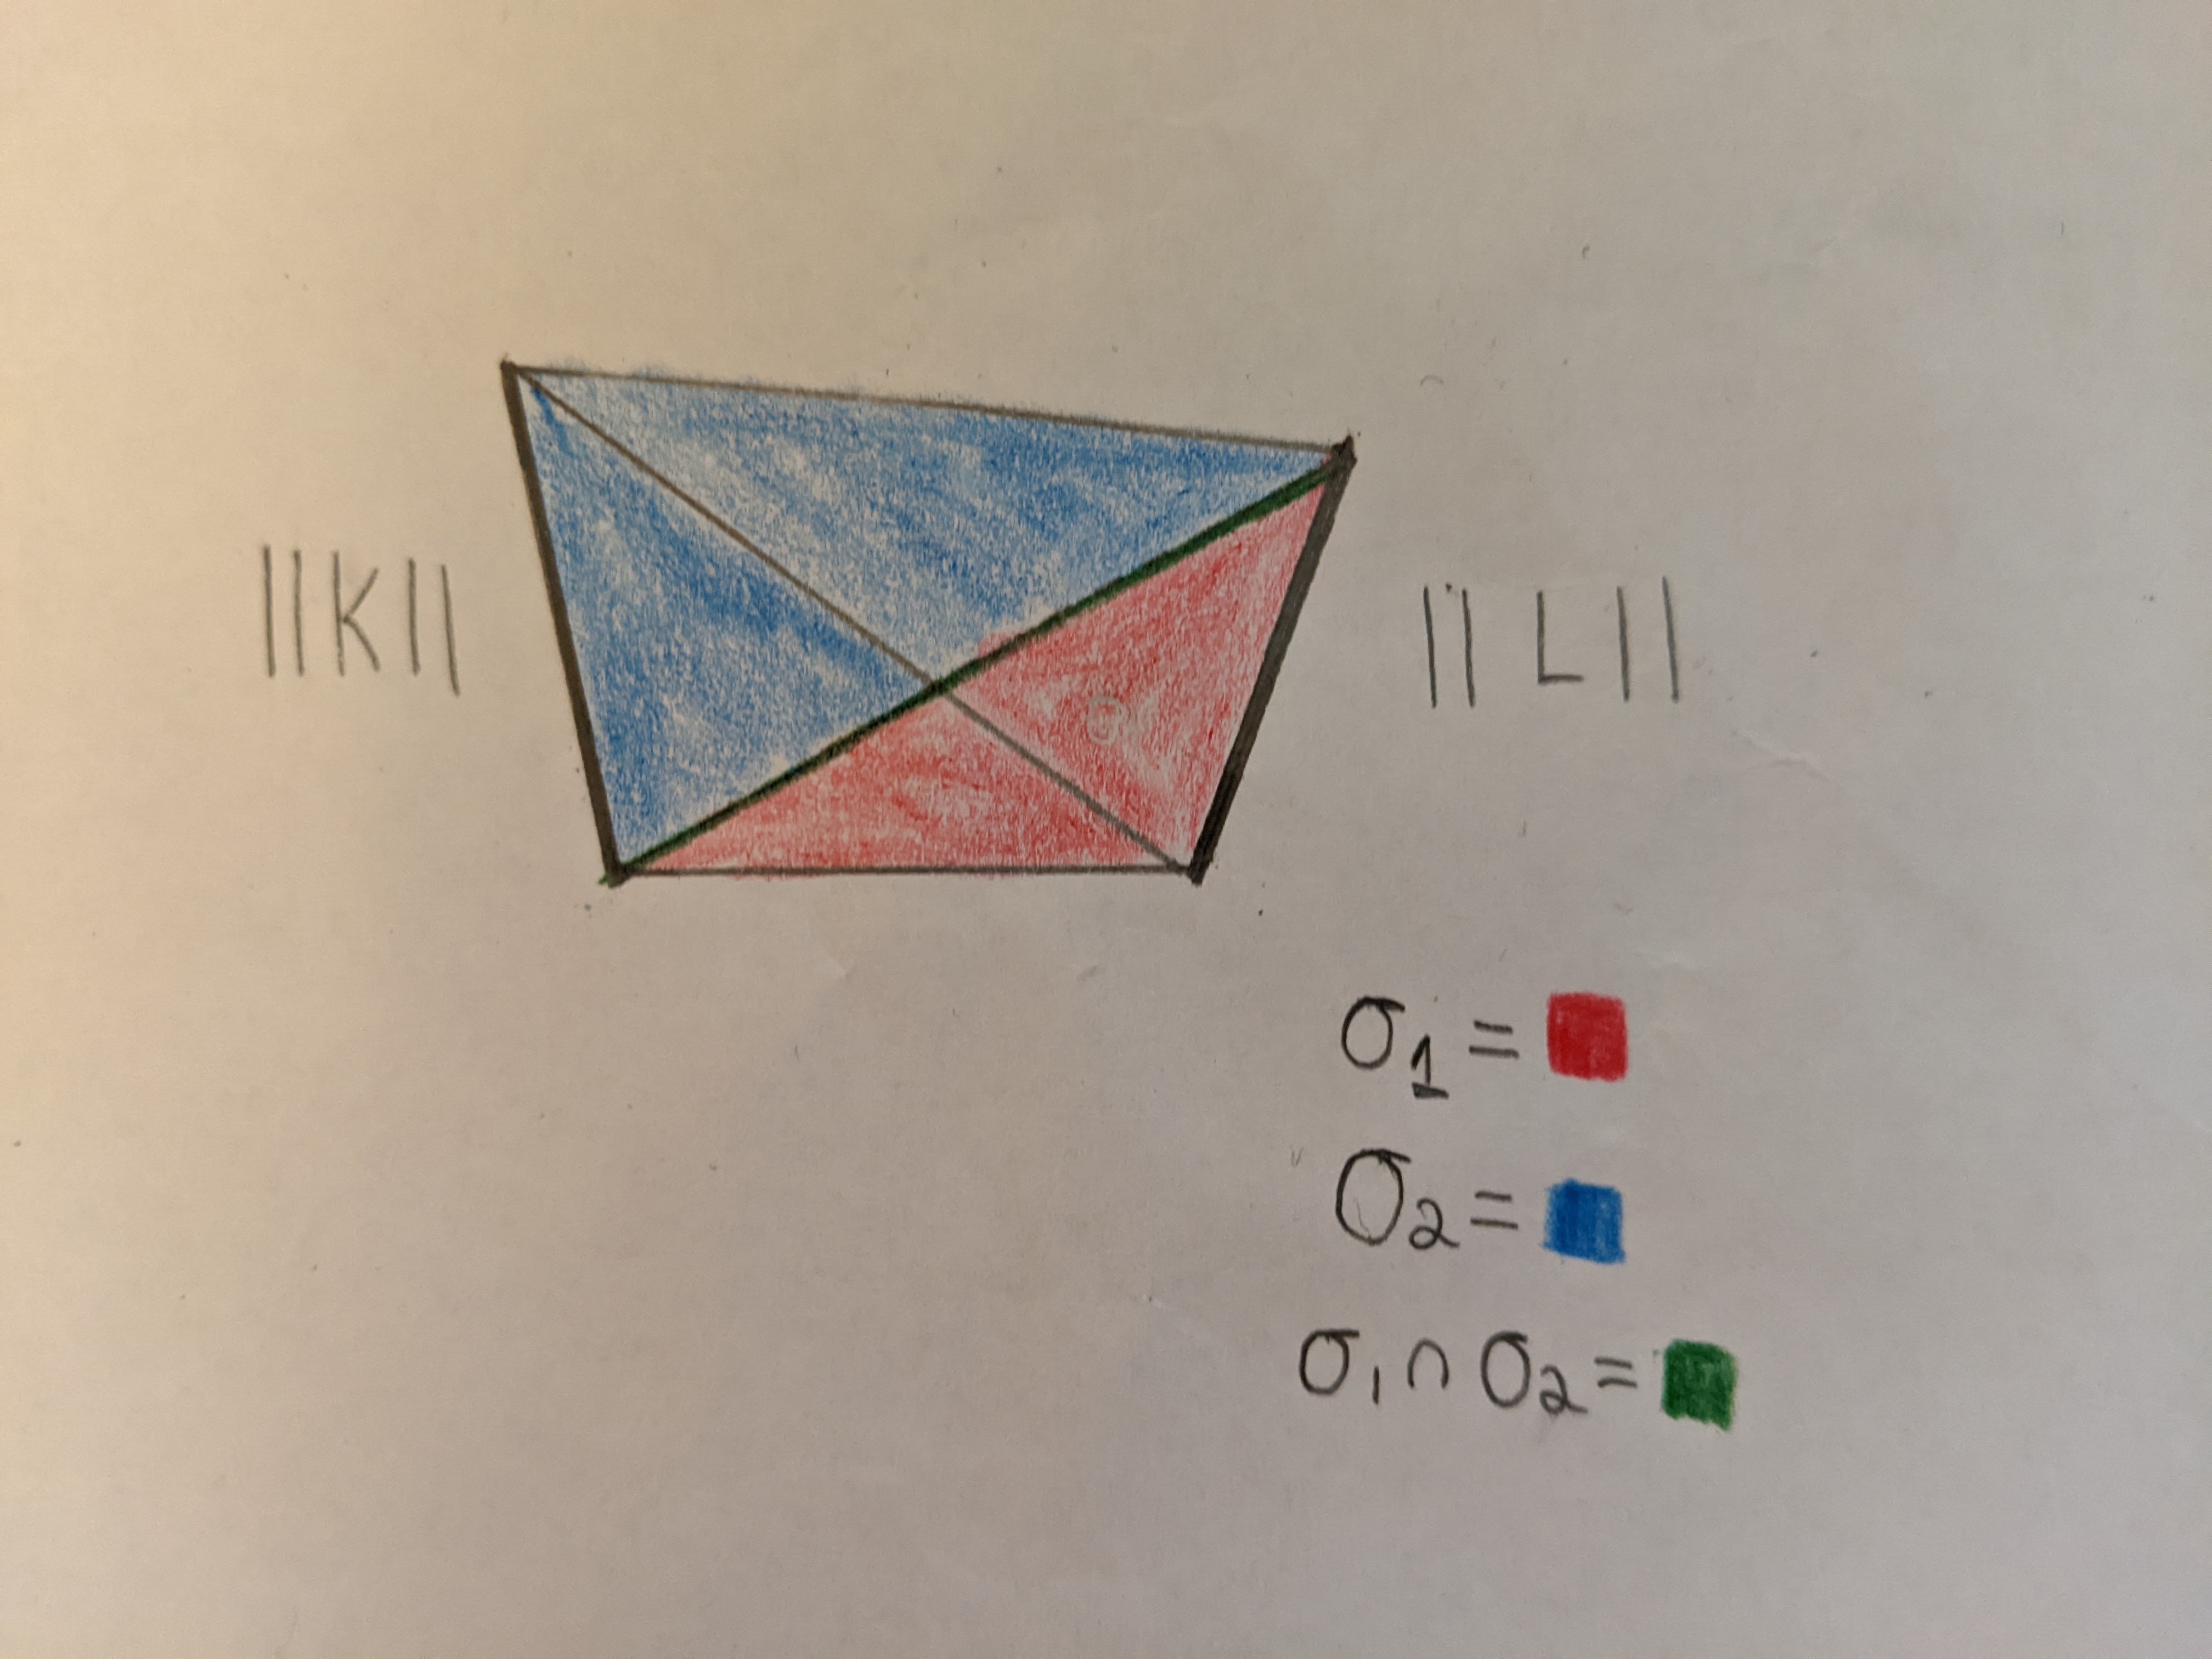 ||K||
||L||
σ1 =
σ2 =
σ1 ∩ σ2 =